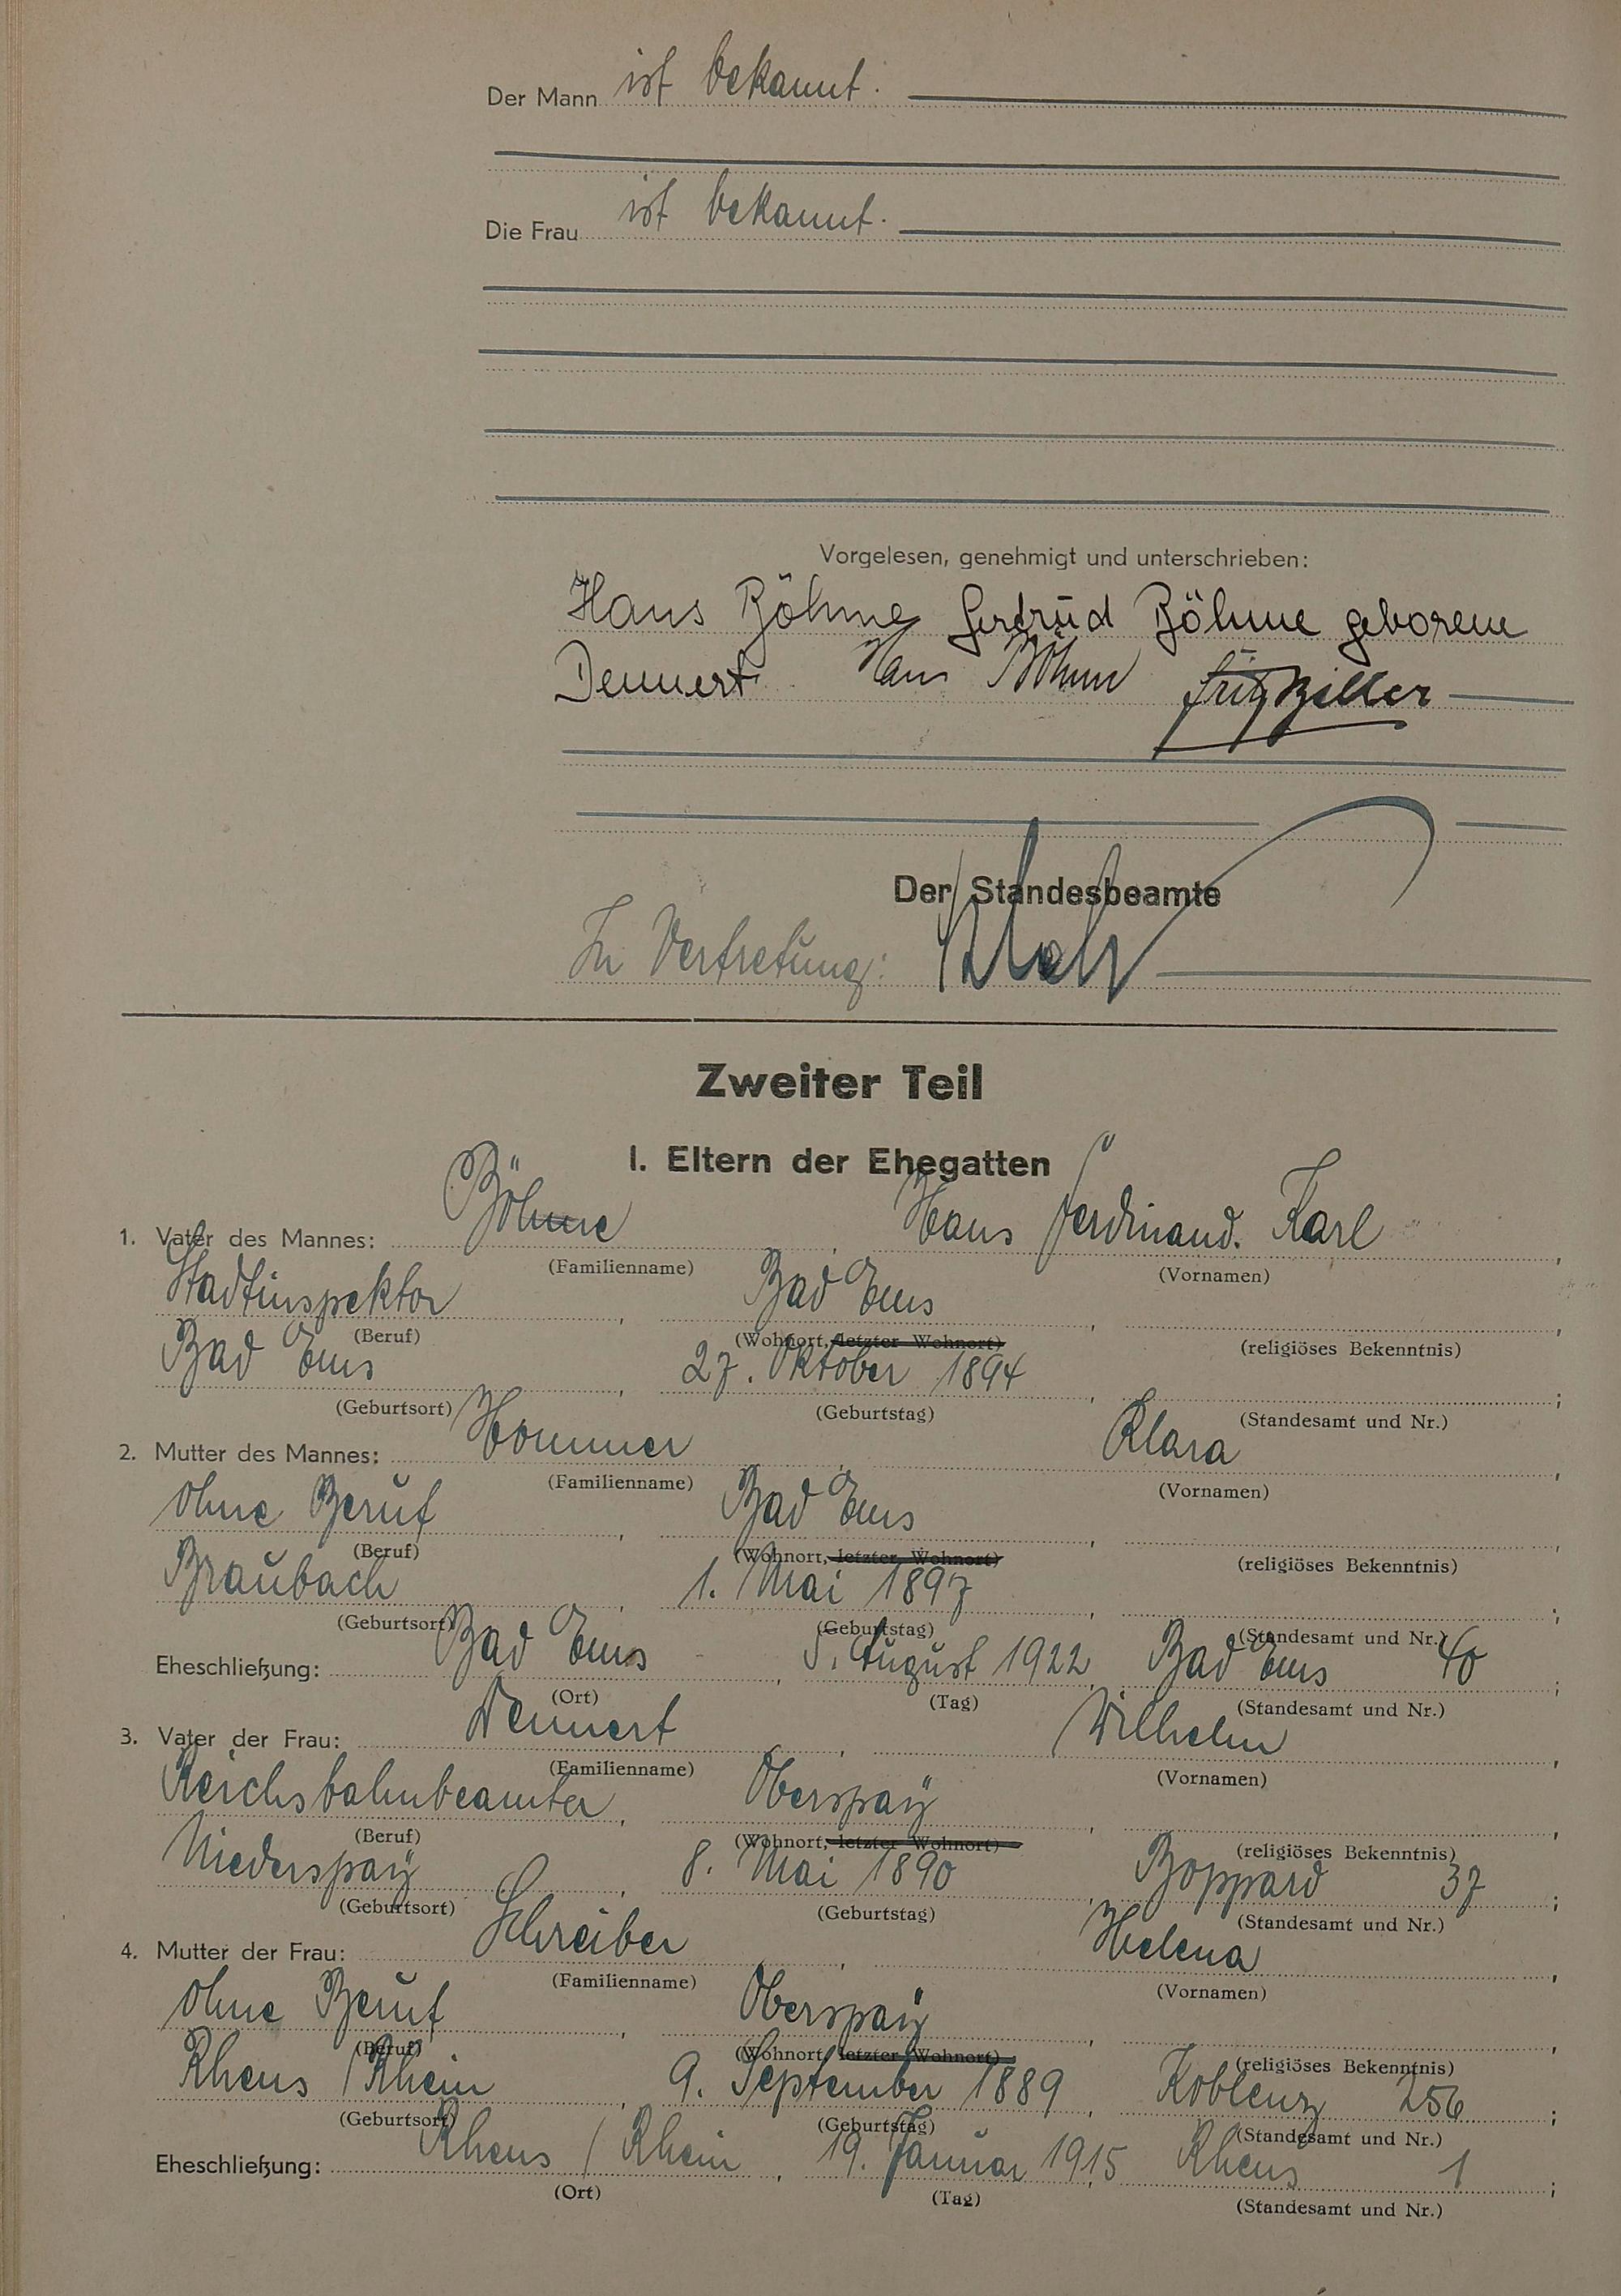 Der Mann ist bekannt.
Die Frau ist bekannt.
Vorgelesen, genehmigt und unterschrieben:
Hans Böhme Gertrud Böhme geborene
Dennert Hans Böhme Fritz
Der Standesbeamte
In Vertretung:
Zweiter Teil
I. Eltern der Ehegatten
1. Vater des Mannes: Böhme, Hans Ferdinand Karl,
(Familienname) (Vornamen)
Stadtinspektor, Bad Ems,
(Beruf) (Wohnort, letzter Wohnort) (religiöses Bekenntnis)
Bad Ems, 27. Oktober 1894, ;
(Geburtsort) (Geburtstag) (Standesamt und Nr.)
2. Mutter des Mannes: Hommer, Klara,
(Familienname) (Vornamen)
ohne Beruf, Bad Ems,
(Beruf) (Wohnort, letzter Wohnort) (religiöses Bekenntnis)
Braubach, 1. Mai 1897, ;
(Geburtsort) (Geburtstag) (Standesamt und Nr.)
Eheschließung: Bad Ems, 5. August 1922, Bad Ems 40;
(Ort) (Tag) (Standesamt und Nr.)
3. Vater der Frau: Dennert, Wilhelm,
(Familienname) (Vornamen)
Reichsbahnbeamter, Oberspaÿ,
(Beruf) (Wohnort, letzter Wohnort) (religiöses Bekenntnis)
Niederspaÿ, 8. Mai 1890, Boppard 37;
(Geburtsort) (Geburtstag) (Standesamt und Nr.)
4. Mutter der Frau: Schreiber, Helena,
(Familienname) (Vornamen)
ohne Beruf, Oberspaÿ,
(Beruf) (Wohnort, letzter Wohnort) (religiöses Bekenntnis)
Rhens / Rhein, 9. September 1889, Koblenz 256;
(Geburtsort) (Geburtstag) (Standesamt und Nr.)
Eheschließung: Rhens / Rhein, 19. Januar 1915, Rhens 1;
(Ort) (Tag) (Standesamt und Nr.)